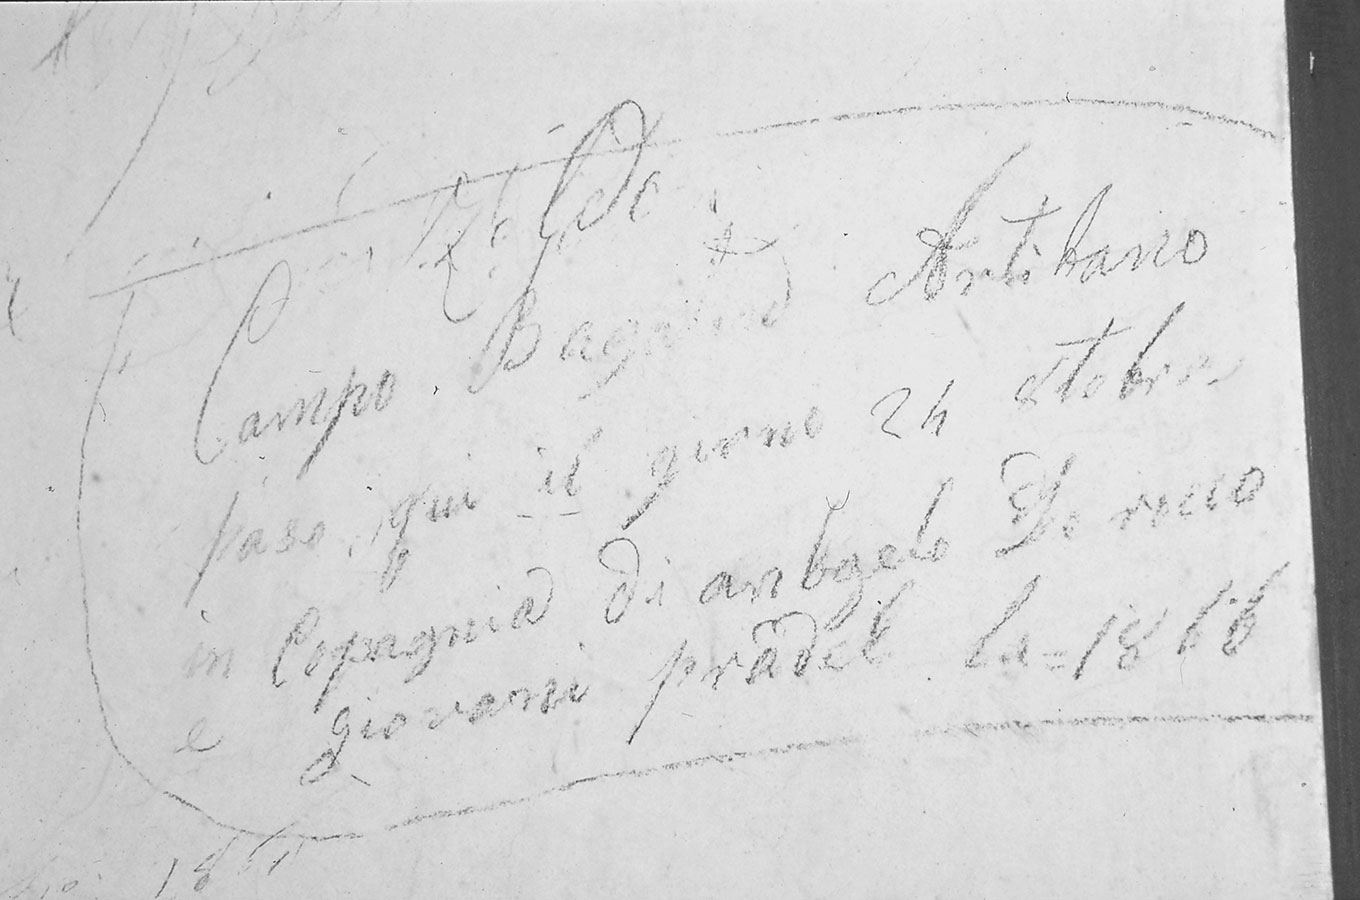 Campo Artibano
paso qui il giorno 24 otobre
in Copagnia di angelo De rocco
e giovani pradel li=1866
186